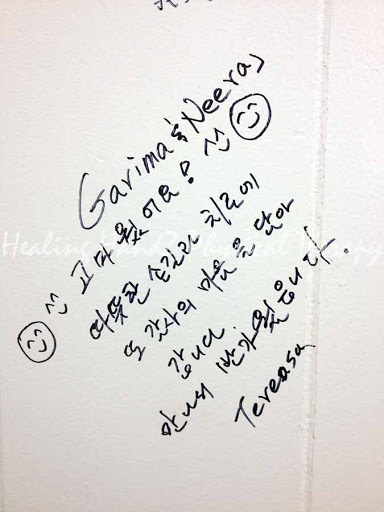 Garima & Neeraj
고마웠어요!
따뜻한 손길과 치료에
또 감사의 마음을 담아
갑니다
만나서 반가웠습니다.
Tereasa
Healing Handz Physical Therapy